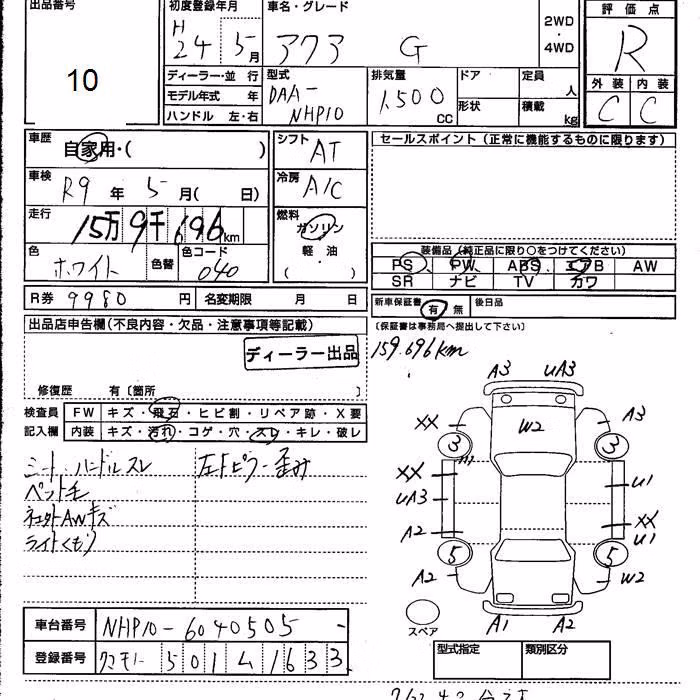 出品番号
10
初度登録年月
H 24 5月
車名・グレード
アクア G
2WD
・
4WD
評価点
R
外装 内装
C C
ディーラー・並 行
モデル年式 年
ハンドル 左・右
型式
DAA-
NHP10
排気量
1,500 cc
ドア
形状
定員 人
積載 kg
車歴
自家用・( )
車検
R9年 5月( 日)
走行
15万9千696km
色
ホワイト
色替
色コード
040
シフト
AT
冷房
A/C
燃料
ガソリン
軽・油
( ・ )
セールスポイント (正常に機能するものに限ります)
装備品 (純正品に限り○をつけてください)
PS PW ABS エアB AW
SR ナビ TV カワ
R券 9980円 名変期限 月 日
新車保証書 有 無 後日品
(保証書は事務局へ提出して下さい)
出品店申告欄(不良内容・欠品・注意事項等記載)
ディーラー出品
159.696km
修復歴 有〔箇所 〕
検査員
記入欄
FW キズ・飛石・ヒビ割・リペア跡・X要
内装 キズ・汚れ・コゲ・穴・スレ・キレ・破レ
シート、ハンドルスレ
左ドピラー歪み
ペット毛
AWキズ
ライトくもり
A3 UA3
XX W2 A3
3 3
XX U1
UA3
XX
A2 U1
5 5
A2 W2
A1 A2
スペア
車台番号 NHP10-6040505-
登録番号 501 ム 1633
型式指定 類別区分